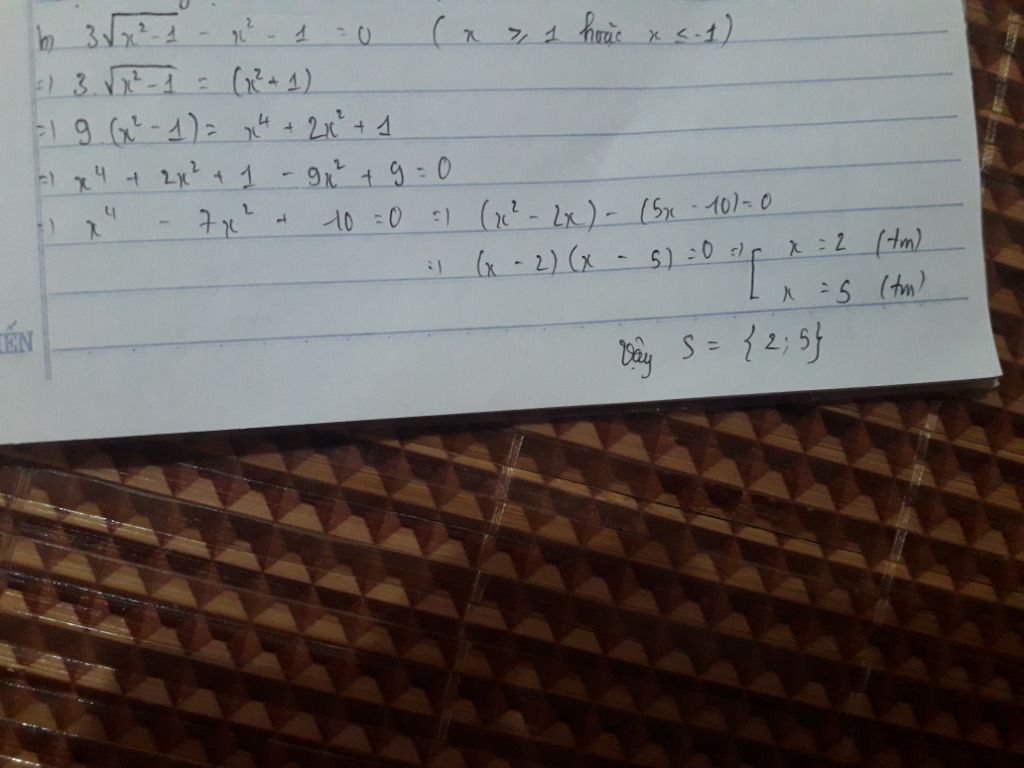 b) 3√(x²-1) - x² - 1 = 0 ( x ≥ 1 hoặc x ≤ -1)
=) 3.√(x²-1) = (x²+1)
=) 9.(x²-1) = x⁴ + 2x² + 1
=) x⁴ + 2x² + 1 - 9x² + 9 = 0
=) x⁴ - 7x² + 10 = 0 =) (x² - 2x) - (5x - 10) = 0
=) (x - 2)(x - 5) = 0 =) [ x = 2 (tm)
x = 5 (tm)
ẾN
Vậy S = {2; 5}